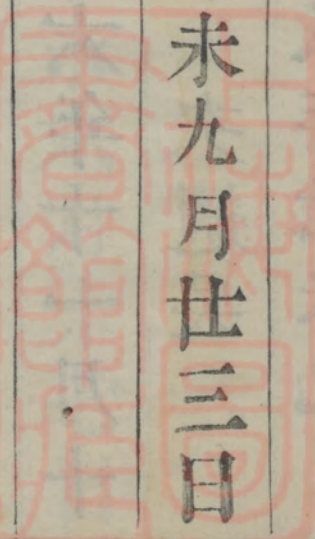 未九月廿三日